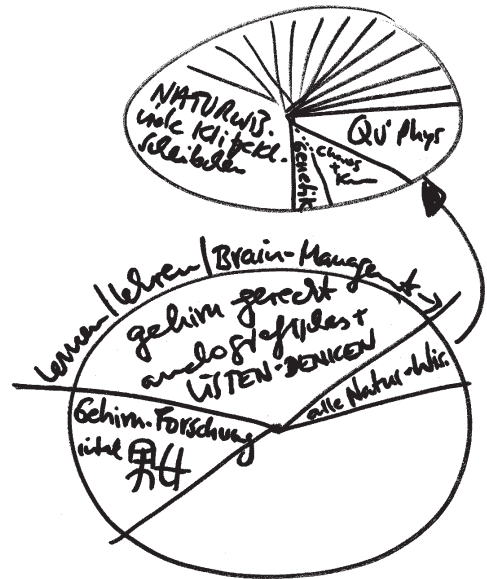 NATURWIß.
viele kl.
QU' Phys
GENETIK
Chaos
+
lernen/lehren/Brain-Management
gehirn-gerecht
analograffisches +
LISTEN-DENKEN
alle Natur-Wis.
Gehirn-Forschung
inkl
男女